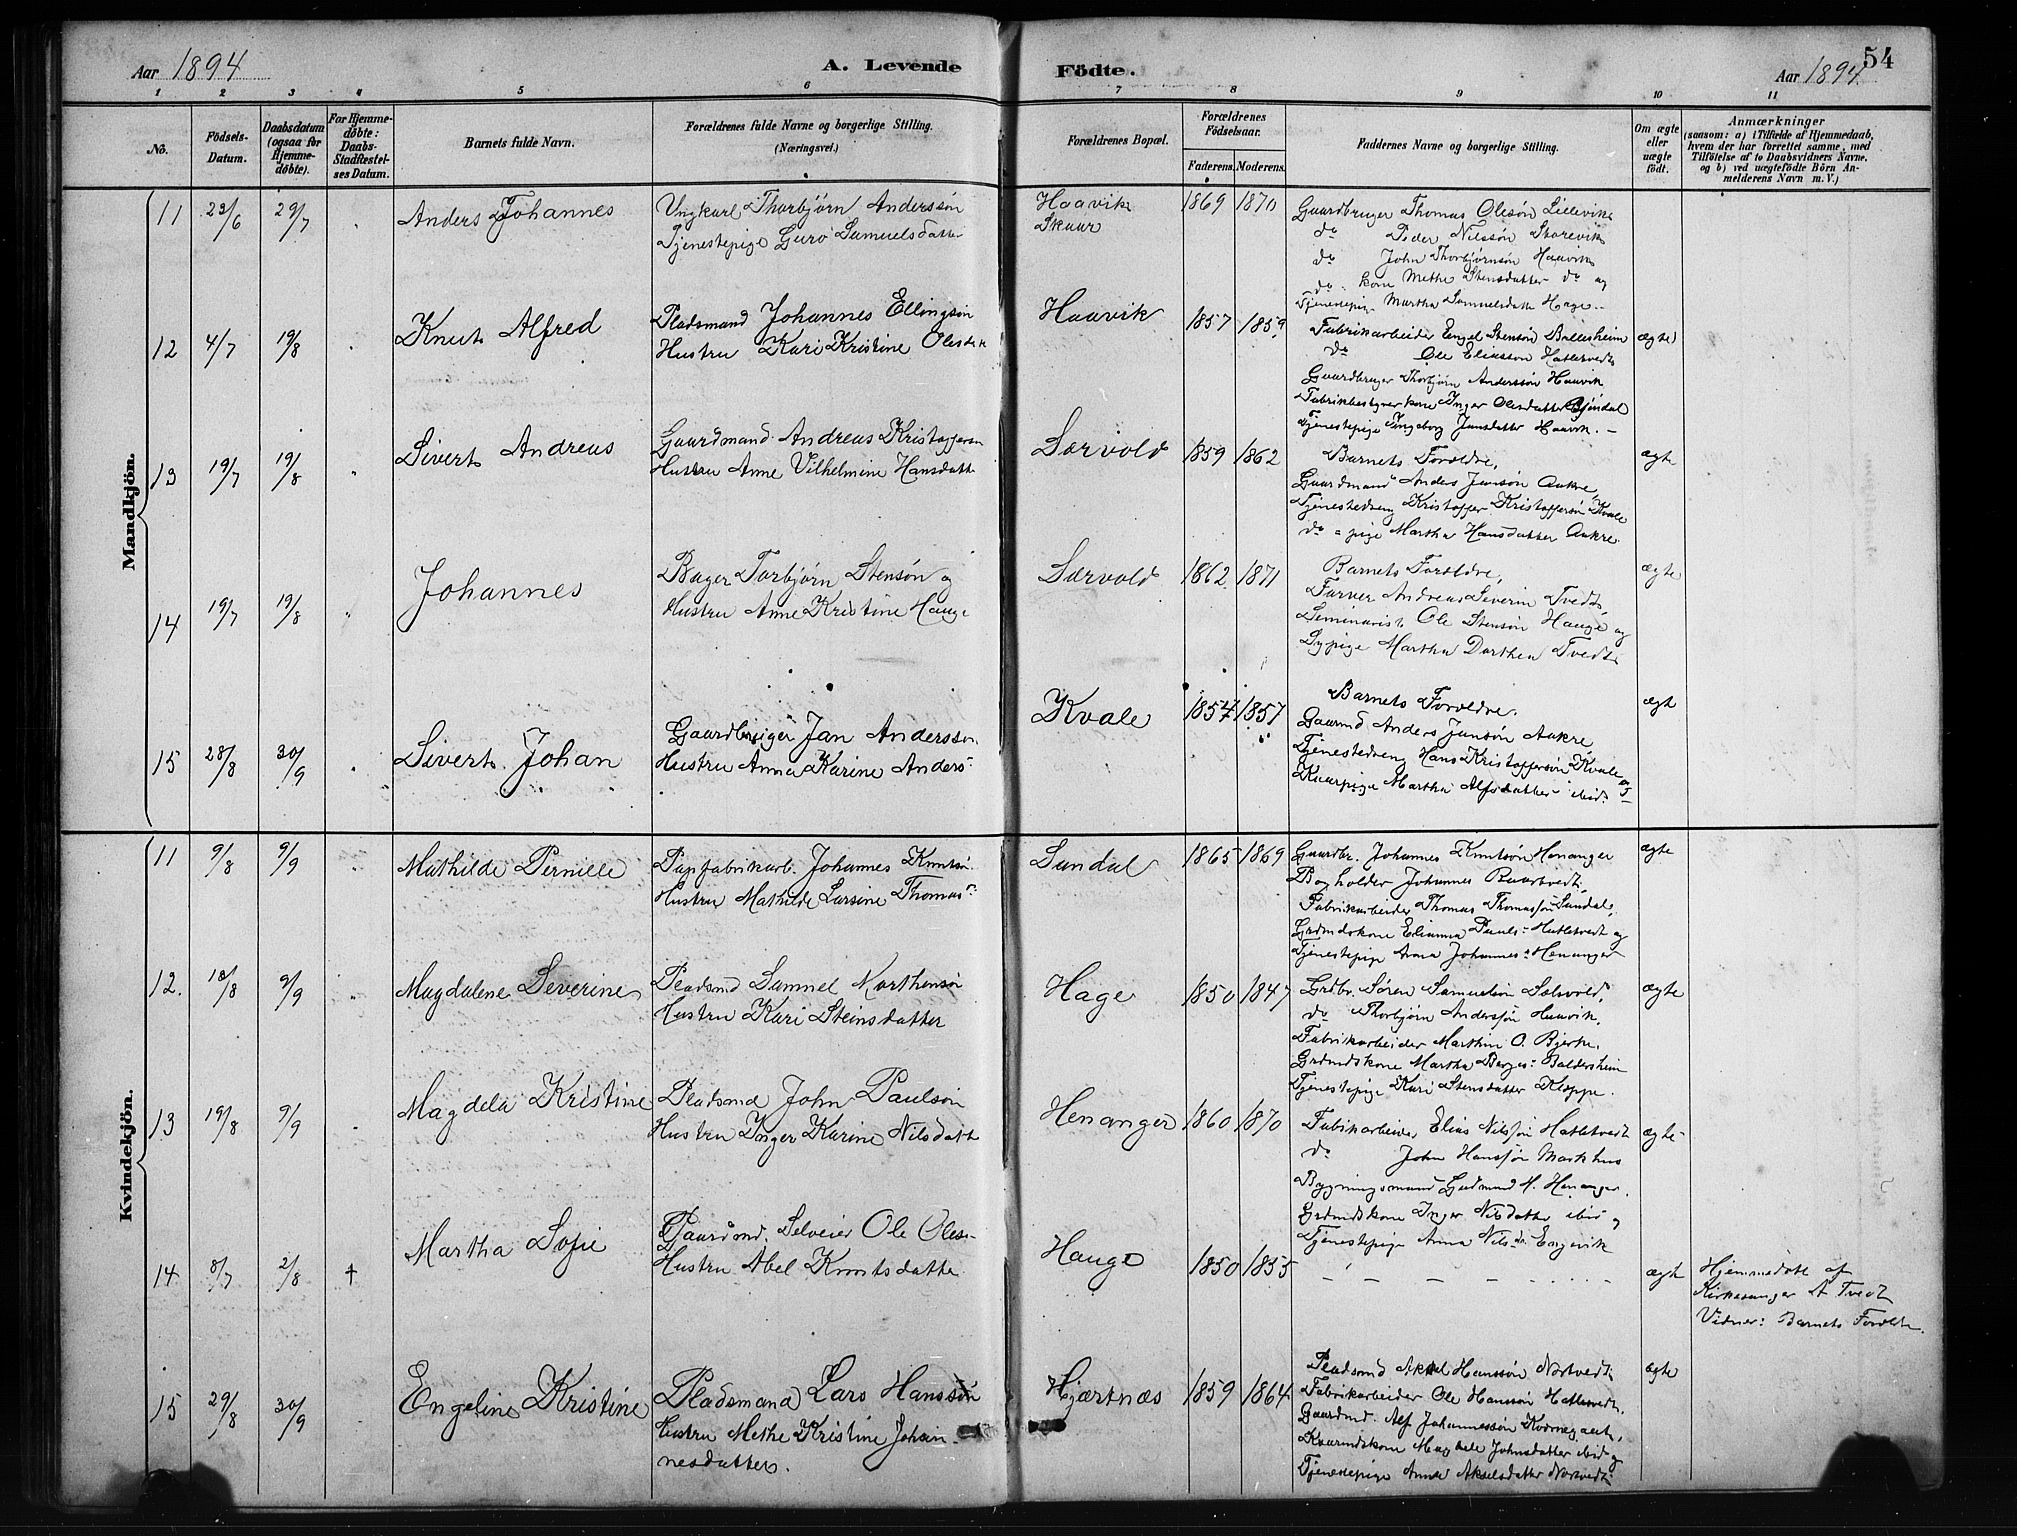 Aar 1894
A. Levende
Födte.
54
Aar 1894.
1 2 3 4 5 6 7 8 9 10 11
No.
Födsels-
Datum.
Daabsdatum
(ogsaa for
Hjemme-
döbte).
For Hjemme-
döbte:
Daabs-
Stadfæstel-
ses Datum.
Barnets fulde Navn.
Forældrenes fulde Navne og borgerlige Stilling.
(Næringsvei.)
Forældrenes Bopæl.
Forældrenes
Födselsaar.
Faderens. Moderens.
Faddernes Navne og borgerlige Stilling.
Om ægte
eller
uægte
födt.
Anmærkninger
(saasom: a) i Tilfælde af Hjemmedaab,
hvem der har forrettet samme, med
Tilföielse af to Daabsvidners Navne,
og b) ved uægtefödte Börn An-
melderens Navn m. V.)
Mandkjön.
11 23/6 29/7 Anders Johannes
Ungkarl Thorbjørn Anderssön
Tjenestepige Guro Samuelsdatter
Haavik
Skaar
1869 1870
Gaardbruger Thomas Olesön Lillevik
do Peder Nilssön Storevik
do John Thorbjörnsön Haavik
do kone Methe Stensdatter do og
Tjenestepig Martha Samuelsdatt Hage
12 4/7 19/8 Knut Alfred
Pladsmand Johannes Ellingsön
Hustru Kari Kristine Olesdtr
Haavik 1857 1859
Fabrikarbeider Engel Stensön Ballesheim
do Ole Eliasson Hatlevedt
Gaardbruger Thorbjørn Anderssön Haavik
Fabrikbestyrer kone Inger Olesdatter Bjöndal
Tjenestepige Ingeborg Jansdatter Haavik. –
ægte
13 19/7 19/8 Sivert Andreas
Gaardmand Andreas Kristoffersn
Hustru Anne Vilhelmine Hansdatter
Særvold 1859 1862
Barnets Forældre,
Gaardmand Anders Jansön Aakre
Tjenestedreng Kristoffer Kristoffersön Kvale
do pige Martha Hansdatter Aakre.
ægte
14 19/7 19/8 Johannes
Bager Torbjörn Stensön og
Hustru Anne Kristine Hauge
Særvold 1862 1871
Barnets Forældre,
Farver Andreas Severin Tvedt,
Seminarist Ole Stensön Hauge og
Sypige Martha Dorthea Tvedt
ægte
15 28/8 30/9 Sivert Johan
Gaardbruger Jan Anderssn.
Hustru Anna Karine Anders-
Kvale 1854 1857
Barnets Forældre.
Gaarmd Anders Jansön Aakre
Tjenestedreng Hans Kristoffersön Kvale og
Kaarpige Martha Alfsdatter ibid.
ægt
Kvindekjön.
11 9/8 9/9 Mathilde Pernille
Papfabrikarb. Johannes Knutsön
Hustru Mathilde Larsine Thomas-
Sundal 1865 1869
Gaardbr. Johannes Knutsön Henanger
Bogholder Johannes Baartvedt,
Fabrikarbeider Thomas Thomassön Sundal,
Grdmdskone Elianna Pauls- Hatletvedt og
Tjenestepige Anna Johannes- Henanger
ægte
12. 18/8 9/9 Magdalene Severine
Pladsmd Samuel Marthensön
Hustru Kari Steinsdatter
Hage 1850 1847
Grdbr. Sören Samuelsön Sælsvold,
do Thorbjørn Anderssön Haavik,
Fabrikarbeider Marthin O. Bjerke,
Grdmdskone Martha Børges- Baldersheim
Tjenestepige Kari Stensdatter Kloppe.
ægte
13 19/8 9/9 Magdela Kristine
Pladsmd John Paulsön
Hustru Inger Karine Nilsdatt
Henanger 1860 1870
Fabrikarbeider Elias Nilssön Hatletvedt
do John Hanssön Markhus
Bygningsmand Gudmund H. Henanger.
Grdmdskone Inger Nilsdatter ibid og
Tjenestepige Anna Nilsdn Engevik
ægte-
14 8/7 2/8 † Martha Sofie
Gaardmd. Selveier Ole Oles-
Hustru Abel Knutsdatter
Hauge 1850 1855
– – – – – . . . .
ægt
Hjemmedøbt af
Kirkesanger A Tvedt
Vidner: Barnets Forældre.
15 29/8 30/9 Engeline Kristine
Pladsmand Lars Hanssön
Hustru Methe Kristine Johan-
nesdatter.
Hjærtnæs 1859 1864
Pladsmd Aksel Hanssön Nortvedt
Fabrikarbeider Ole Hanssön Hatletvedt.
Gaardmd. Alf Johannessön
Kaarmdskone Magdele Johnsdatter ibid og
Tjenestepige Anna Akselsdatter Nortvedt
ægte